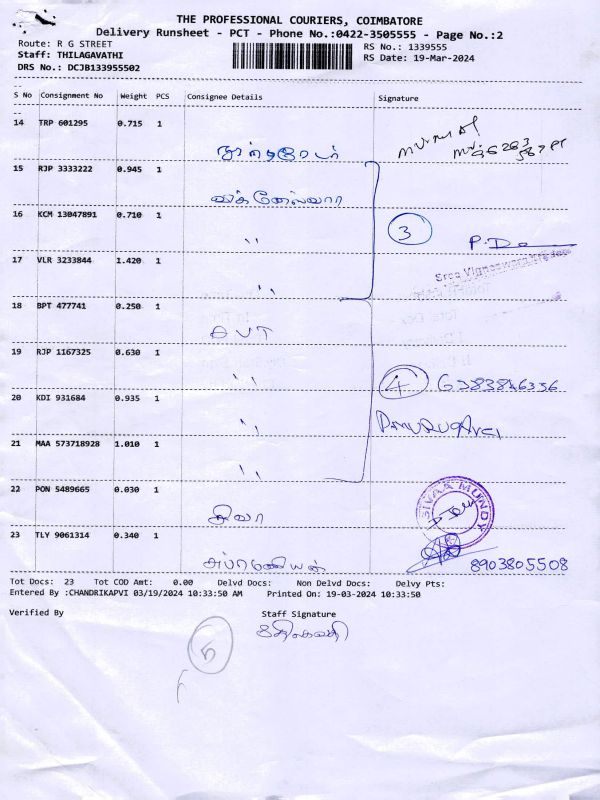 THE PROFESSIONAL COURIERS, COIMBATORE
Delivery Runsheet - PCT - Phone No.:0422-3505555 - Page No.:2
Route: R G STREET
RS No.: 1339555
Staff: THILAGAVATHI
RS Date: 19-Mar-2024
DRS No.: DCJB133955502
--
S No Consignment No Weight PCS Consignee Details Signature
--
14 TRP 601295 0.715 1
15 RJP 3333222 0.945 1
விக்னேஸ்வரா
16 KCM 13047891 0.710 1
3
,, P.D
17 VLR 3233844 1.420 1
Sree Vigneswara Traders
,,
18 BPT 477741 0.250 1
AVT
19 RJP 1167325 0.630 1
,, 4 6383846356
20 KDI 931684 0.935 1
,, P.MURUGAVEL
21 MAA 573718928 1.010 1
,,
22 PON 5489665 0.030 1
SIVAA MUNDY
சிவா
23 TLY 9061314 0.340 1
8903805508
Tot Docs: 23 Tot COD Amt: 0.00 Delvd Docs: Non Delvd Docs: Delvy Pts:
Entered By :CHANDRIKAPVI 03/19/2024 10:33:50 AM Printed On: 19-03-2024 10:33:50
Verified By Staff Signature
5